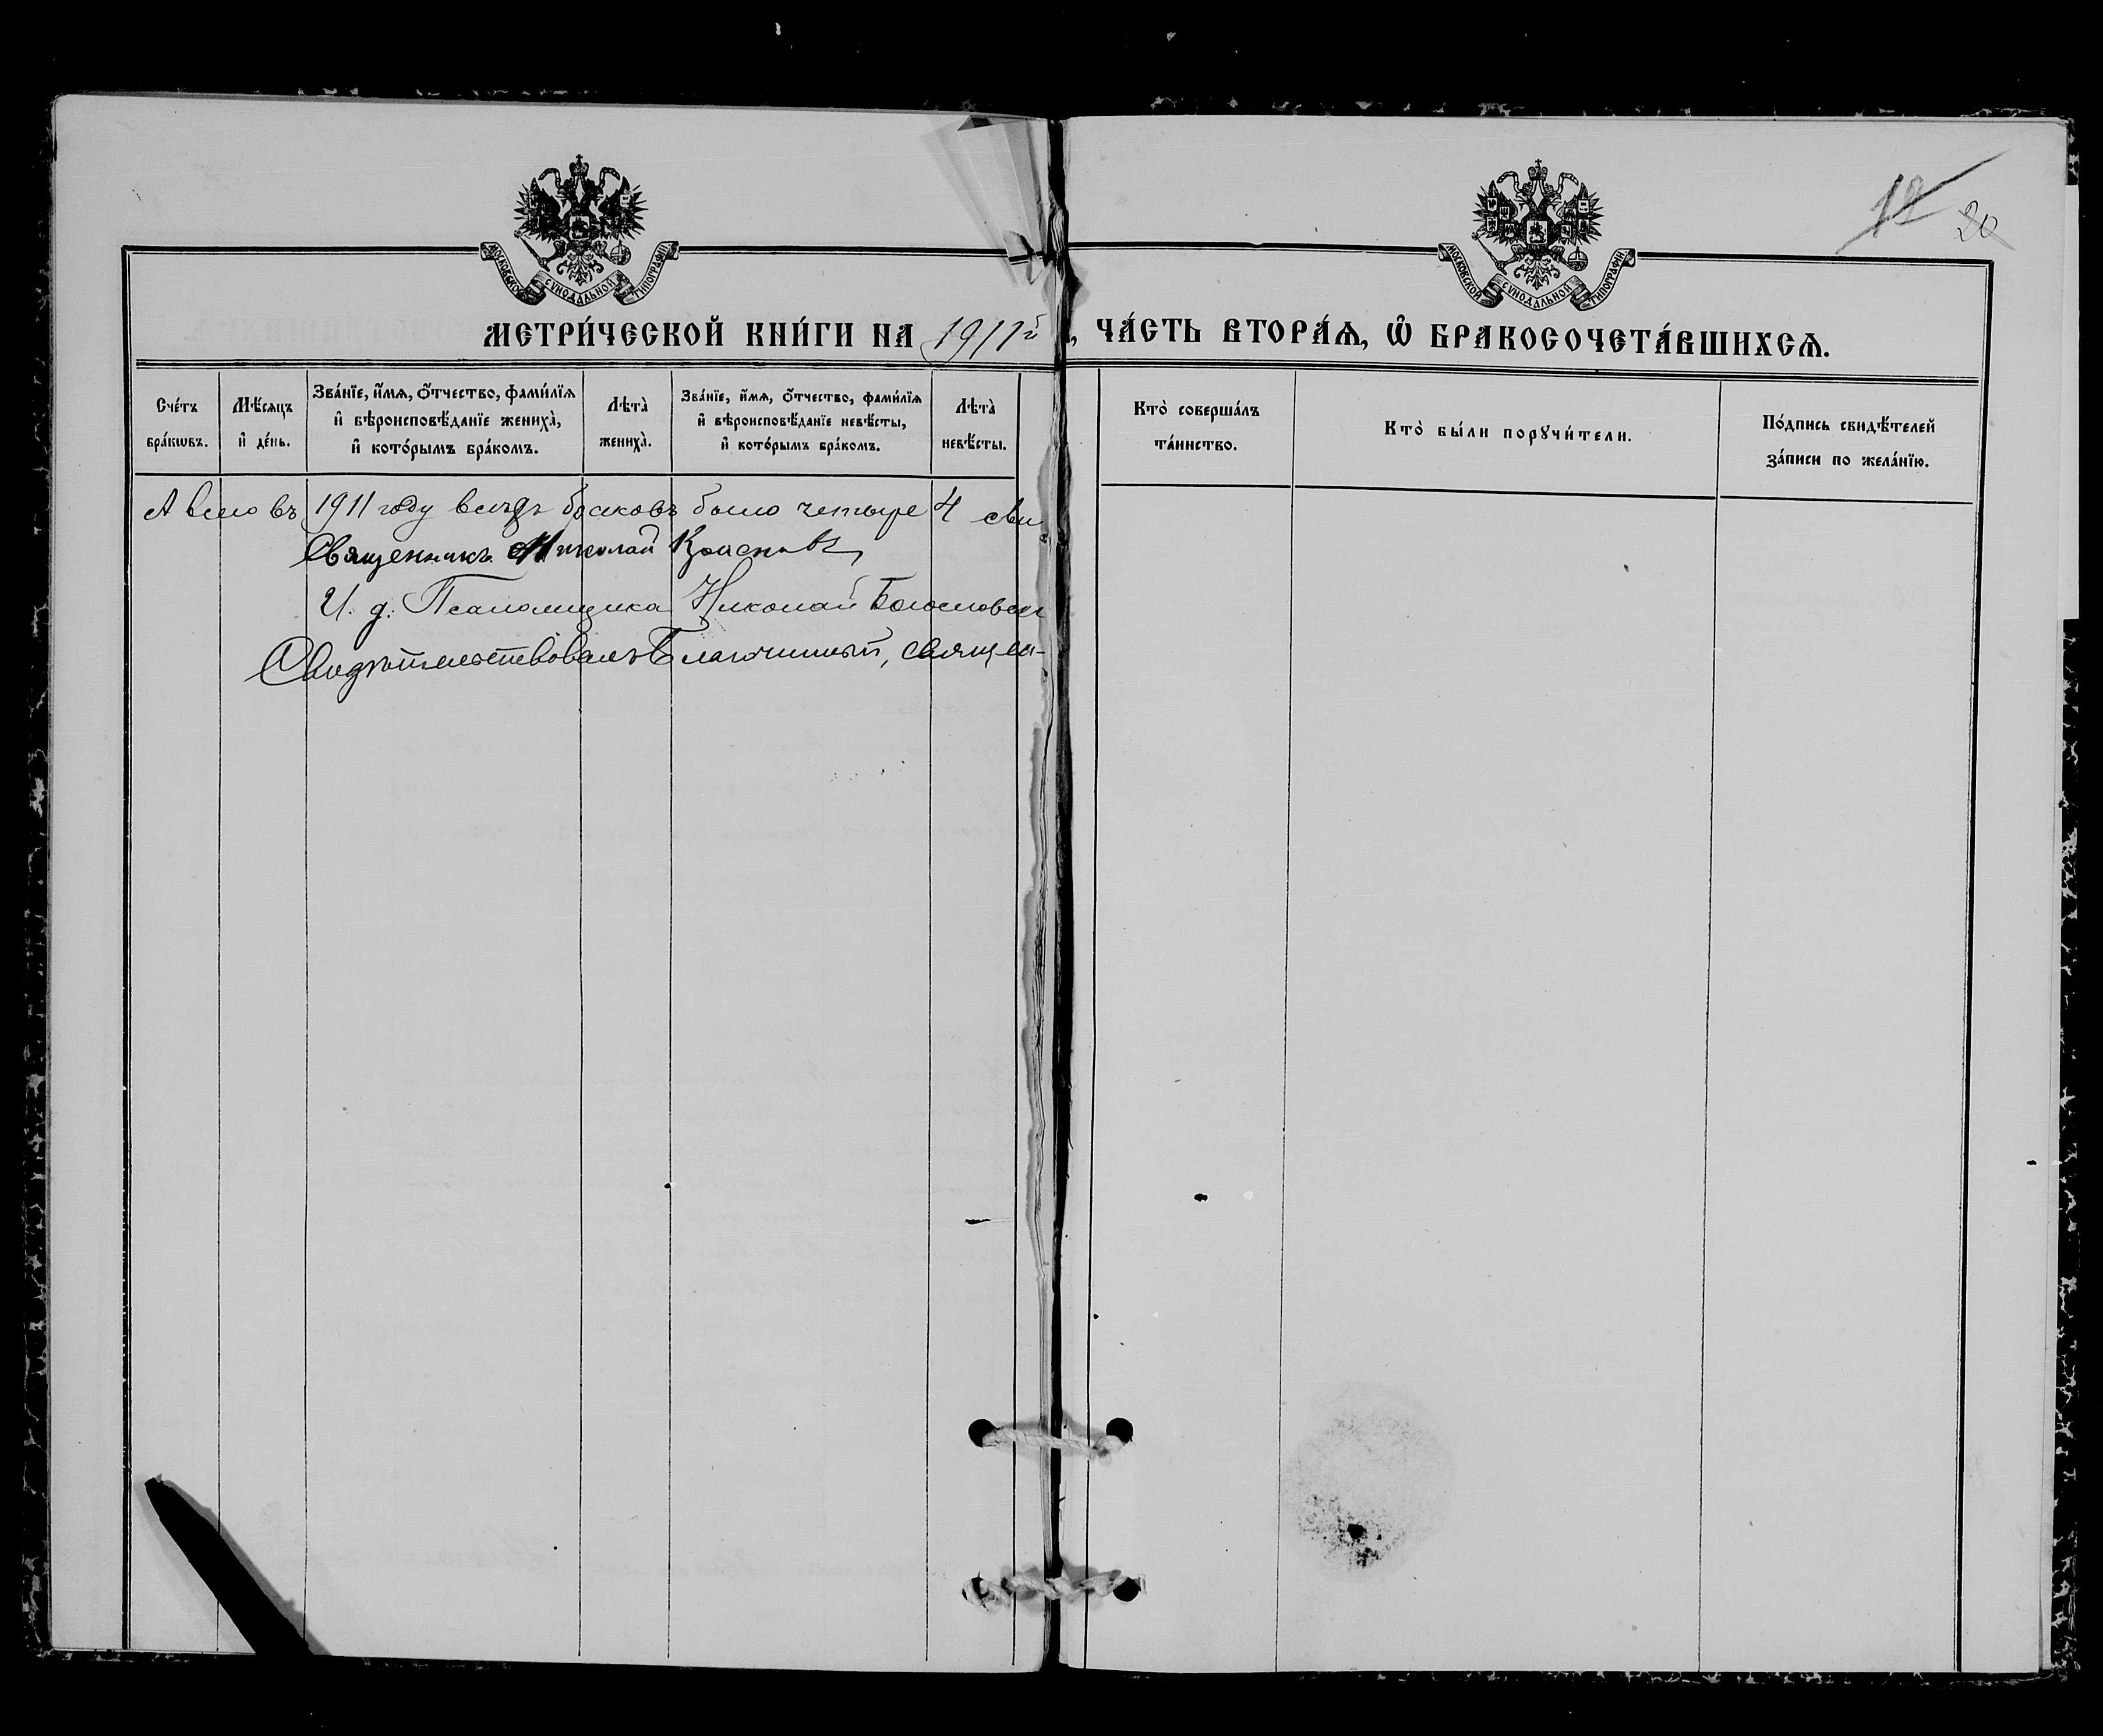 МОСКОВСКОЙ СѴНОДАЛЬНОЙ ТИПОГРАФІИ
МОСКОВСКОЙ СѴНОДАЛЬНОЙ ТИПОГРАФІИ
12
20
МЕТРИ́ЧЕСКОЙ КНИ́ГИ НА 1911й, ЧА́СТЬ ВТОРА́Ѧ, Ѽ БРАКОСОЧЕТА́ВШИХСѦ.
Сче́тъ бра́кѡвъ.
Мѣ́сѧцъ и҆ де́нь.
Зва́нїе, и҆́мѧ, ѻ҆́тчество, фами́лїѧ и҆ вѣроисповѣ́данїе жениха̀, и҆ кото́рымъ бра́комъ.
Лѣта̀ жениха̀.
Зва́нїе, и҆́мѧ, ѻ҆́тчество, фами́лїѧ и҆ вѣроисповѣ́данїе невѣ́сты, и҆ кото́рымъ бра́комъ.
Лѣта̀ невѣ́сты.
Кто̀ соверша́лъ та́инство.
Кто̀ бы́ли порꙋчи́тели.
По́дпись свидѣ́телей за́писи по жела́нїю.
А всего въ 1911 году всѣхъ браковъ было четыре 4
Священникъ Николай Красновъ
И. д. Псаломщика Николай Богословск
Свидѣтельствовалъ Благочинный, священ-